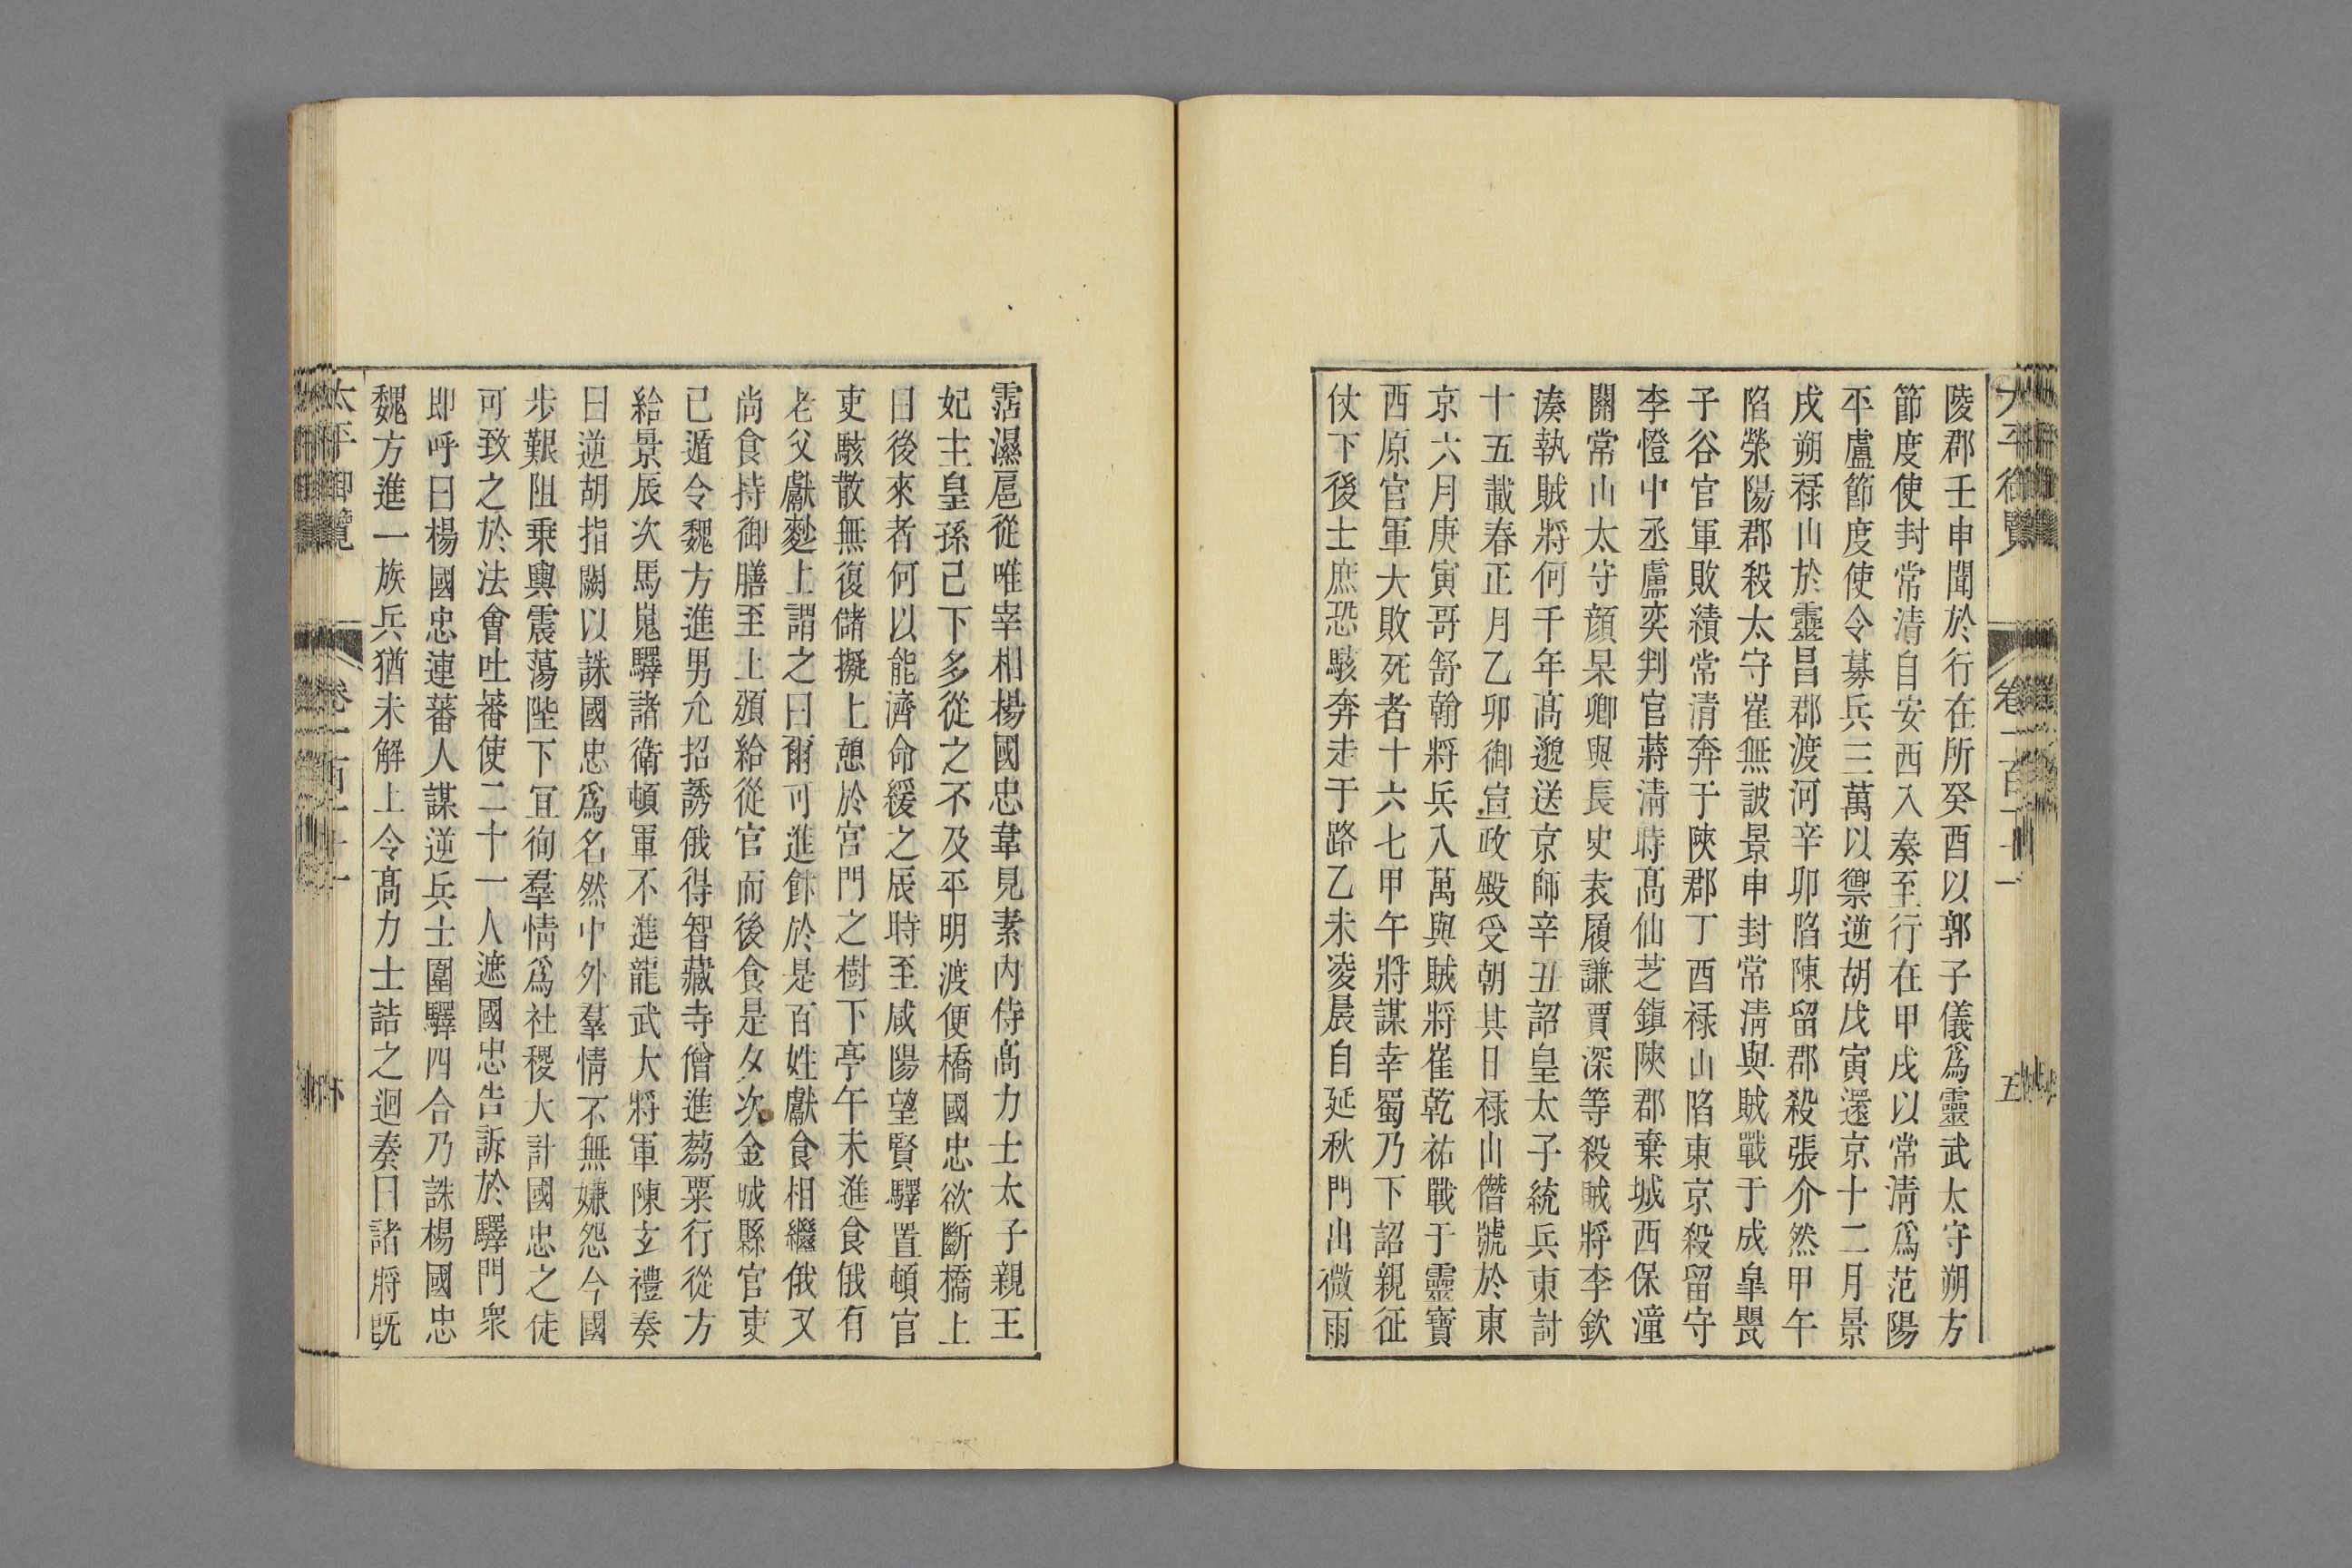 陵郡壬申聞於行在所癸酉以郭子儀爲靈武太守朔方
節度使封常清自安西入奏至行在甲戌以常清爲范陽
平盧節度使令募兵三萬以禦逆胡戊寅還京十二月景
戌朔祿山於靈昌郡渡河辛卯陷陳留郡殺張介然甲午
陷滎陽郡殺太守崔無詖景申封常清與賊戰于成皐甖
子谷官軍敗績常清奔于陝郡丁酉祿山陷東京殺留守
李憕中丞盧奕判官蔣清時髙仙芝鎮陝郡棄城西保潼
關常山太守顔杲卿與長史袁履謙賈深等殺賊將李欽
湊執賊將何千年髙邈送京師辛丑詔皇太子統兵東討
十五載春正月乙卯御宣政殿受朝其日祿山僭號於東
京六月庚寅哥舒翰將兵八萬與賊將崔乾祐戰于靈寶
西原官軍大敗死者十六七甲午將謀幸蜀乃下詔親征
仗下後士庶恐駭奔走于路乙未凌晨自延秋門出微雨
霑濕扈從唯宰相楊國忠韋見素内侍髙力士太子親王
妃主皇孫已下多從之不及平明渡便橋國忠欲斷橋上
曰後來者何以能濟命緩之辰時至咸陽望賢驛置頓官
吏駭散無復儲擬上憩於宮門之樹下亭午未進食俄有
老父獻麨上謂之曰爾可進飰於是百姓獻食相繼俄又
尚食持御膳至上頒給從官而後食是夕次金城縣官吏
已遁令魏方進男允招誘俄得智藏寺僧進芻粟行從方
給景辰次馬嵬驛諸衛頓軍不進龍武大將軍陳玄禮奏
曰逆胡指闕以誅國忠爲名然中外羣情不無嫌怨今國
步艱阻乗輿震蕩陛下宜徇羣情爲社稷大計國忠之徒
可致之於法會吐蕃使二十一人遮國忠告訴於驛門衆
即呼曰楊國忠連蕃人謀逆兵士圍驛四合乃誅楊國忠
魏方進一族兵猶未解上令髙力士詰之迴奏曰諸將旣
太平御覽 卷一百十一